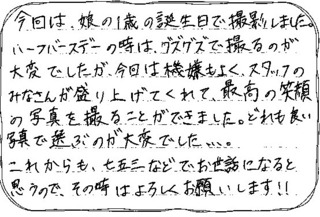 今回は、娘の1歳の誕生日で撮影しました。
ハーフバースデーの時は、グズグズで撮るのが
大変でしたが、今回は機嫌もよく、スタッフの
みなさんが盛り上げてくれて、最高の笑顔
の写真を撮ることができました。どれも良い
写真で選ぶのが大変でした...。
これからも、七五三などでお世話になると
思うので、その時はよろしくお願いします!!